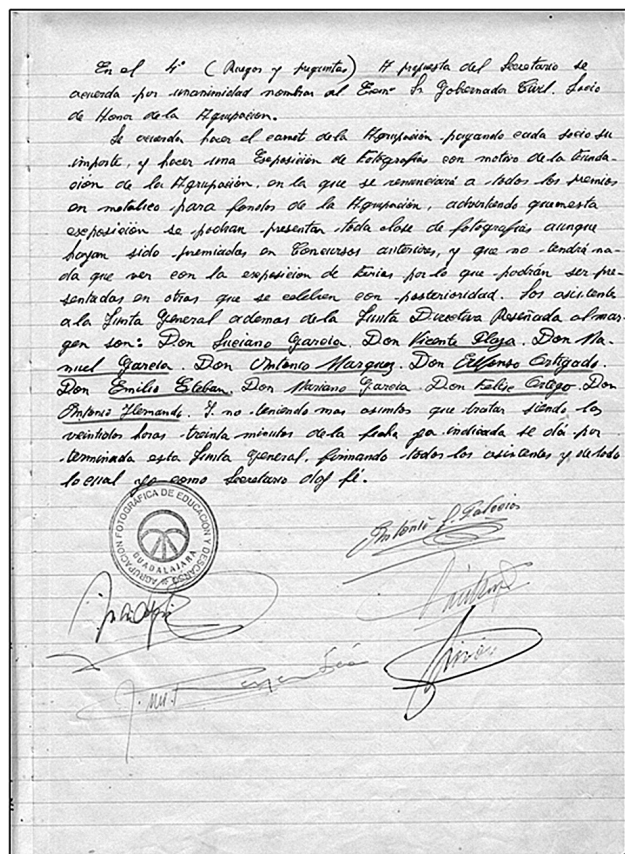 En el 4º (Ruegos y preguntas) A propuesta del Secretario se
acuerda por unanimidad nombrar al Exmº Sr Gobernador Civil. Socio
de Honor de la Agrupación.
Se acuerda hacer el carnet de la Agrupación pagando cada socio su
importe, y hacer una Exposición de Fotografías con motivo de la funda-
ción de la Agrupación, en la que se renunciará a todos los premios
en metálico para fondos de la Agrupación, advirtiendo que en esta
exposición se podran presentar toda clase de fotografías aunque
hayan sido premiadas en Concursos anteriores, y que no tendrá na-
da que ver con la exposición de ferias por lo que podrán ser pre-
sentadas en otras que se celebren con posterioridad. Los asistentes
a la Junta General ademas de la Junta Directiva Reseñada al mar-
gen son: Don Luciano Garcia. Don Vicente Plaza. Don Ma-
nuel Garcia. Don Antonio Marquez. Don Alfonso Ortigado.
Don Emilio Esteban. Don Mariano Garcia. Don Felipe Ortego. Don
Antonio Hernando. Y no teniendo mas asuntos que tratar siendo las
veintidos horas treinta minutos de la fecha ya indicada se dá por
terminada esta Junta General, firmando todos los asistentes y de todo
lo cual yo como Secretario doy fé.
AGRUPACIÓN FOTOGRÁFICA DE EDUCACIÓN Y DESCANSO
GUADALAJARA
Antonio